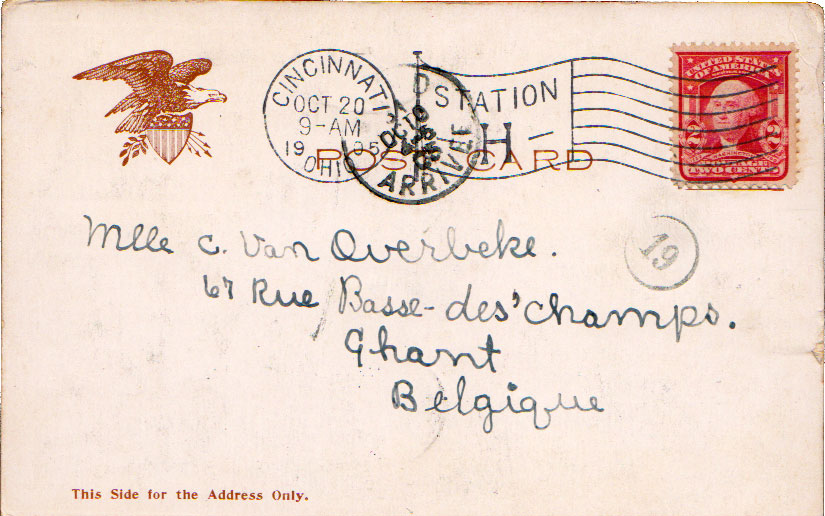 CINCINNATI
OCT 20
9-AM
1905
OHIO
STATION
H
ARRIVÉE
UNITED STATES
OF AMERICA
2 2
TWO CENTS
POST CARD
19
Mlle c. Van Overbeke.
67 Rue Basse-des'champs.
Ghant
Belgique
This Side for the Address Only.